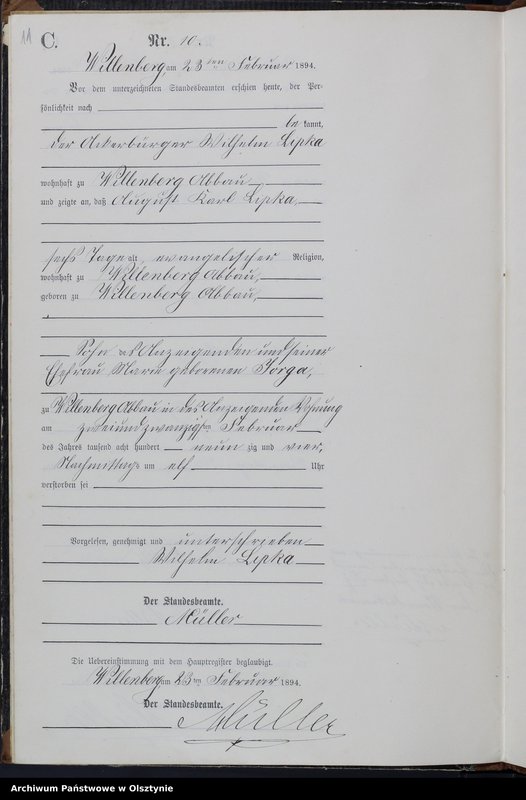 11
C.
Nr. 10.
Willenberg, am 23ten Februar 1894.
Vor dem unterzeichneten Standesbeamten erschien heute, der Per-
sönlichkeit nach
be kannt,
der Ackerbürger Wilhelm Lipka
wohnhaft zu Willenberg Abbau
und zeigte an, daß August Karl Lipka,
sechs Tage alt, evangelischer Religion,
wohnhaft zu Willenberg Abbau,
geboren zu Willenberg Abbau,
Sohn des Anzeigenden und seiner
Ehefrau Marie geborenen Jorga,
zu Willenberg Abbau in des Anzeigenden Wohnung
am zweiundzwanzigsten Februar
des Jahres tausend acht hundert neun zig und vier,
Nachmittags um elf Uhr
verstorben sei
Vorgelesen, genehmigt und unterschrieben
Wilhelm Lipka
Der Standesbeamte.
Müller
Die Uebereinstimmung mit dem Hauptregister beglaubigt.
Willenberg am 23ten Februar 1894.
Der Standesbeamte.
Müller
Archiwum Państwowe w Olsztynie